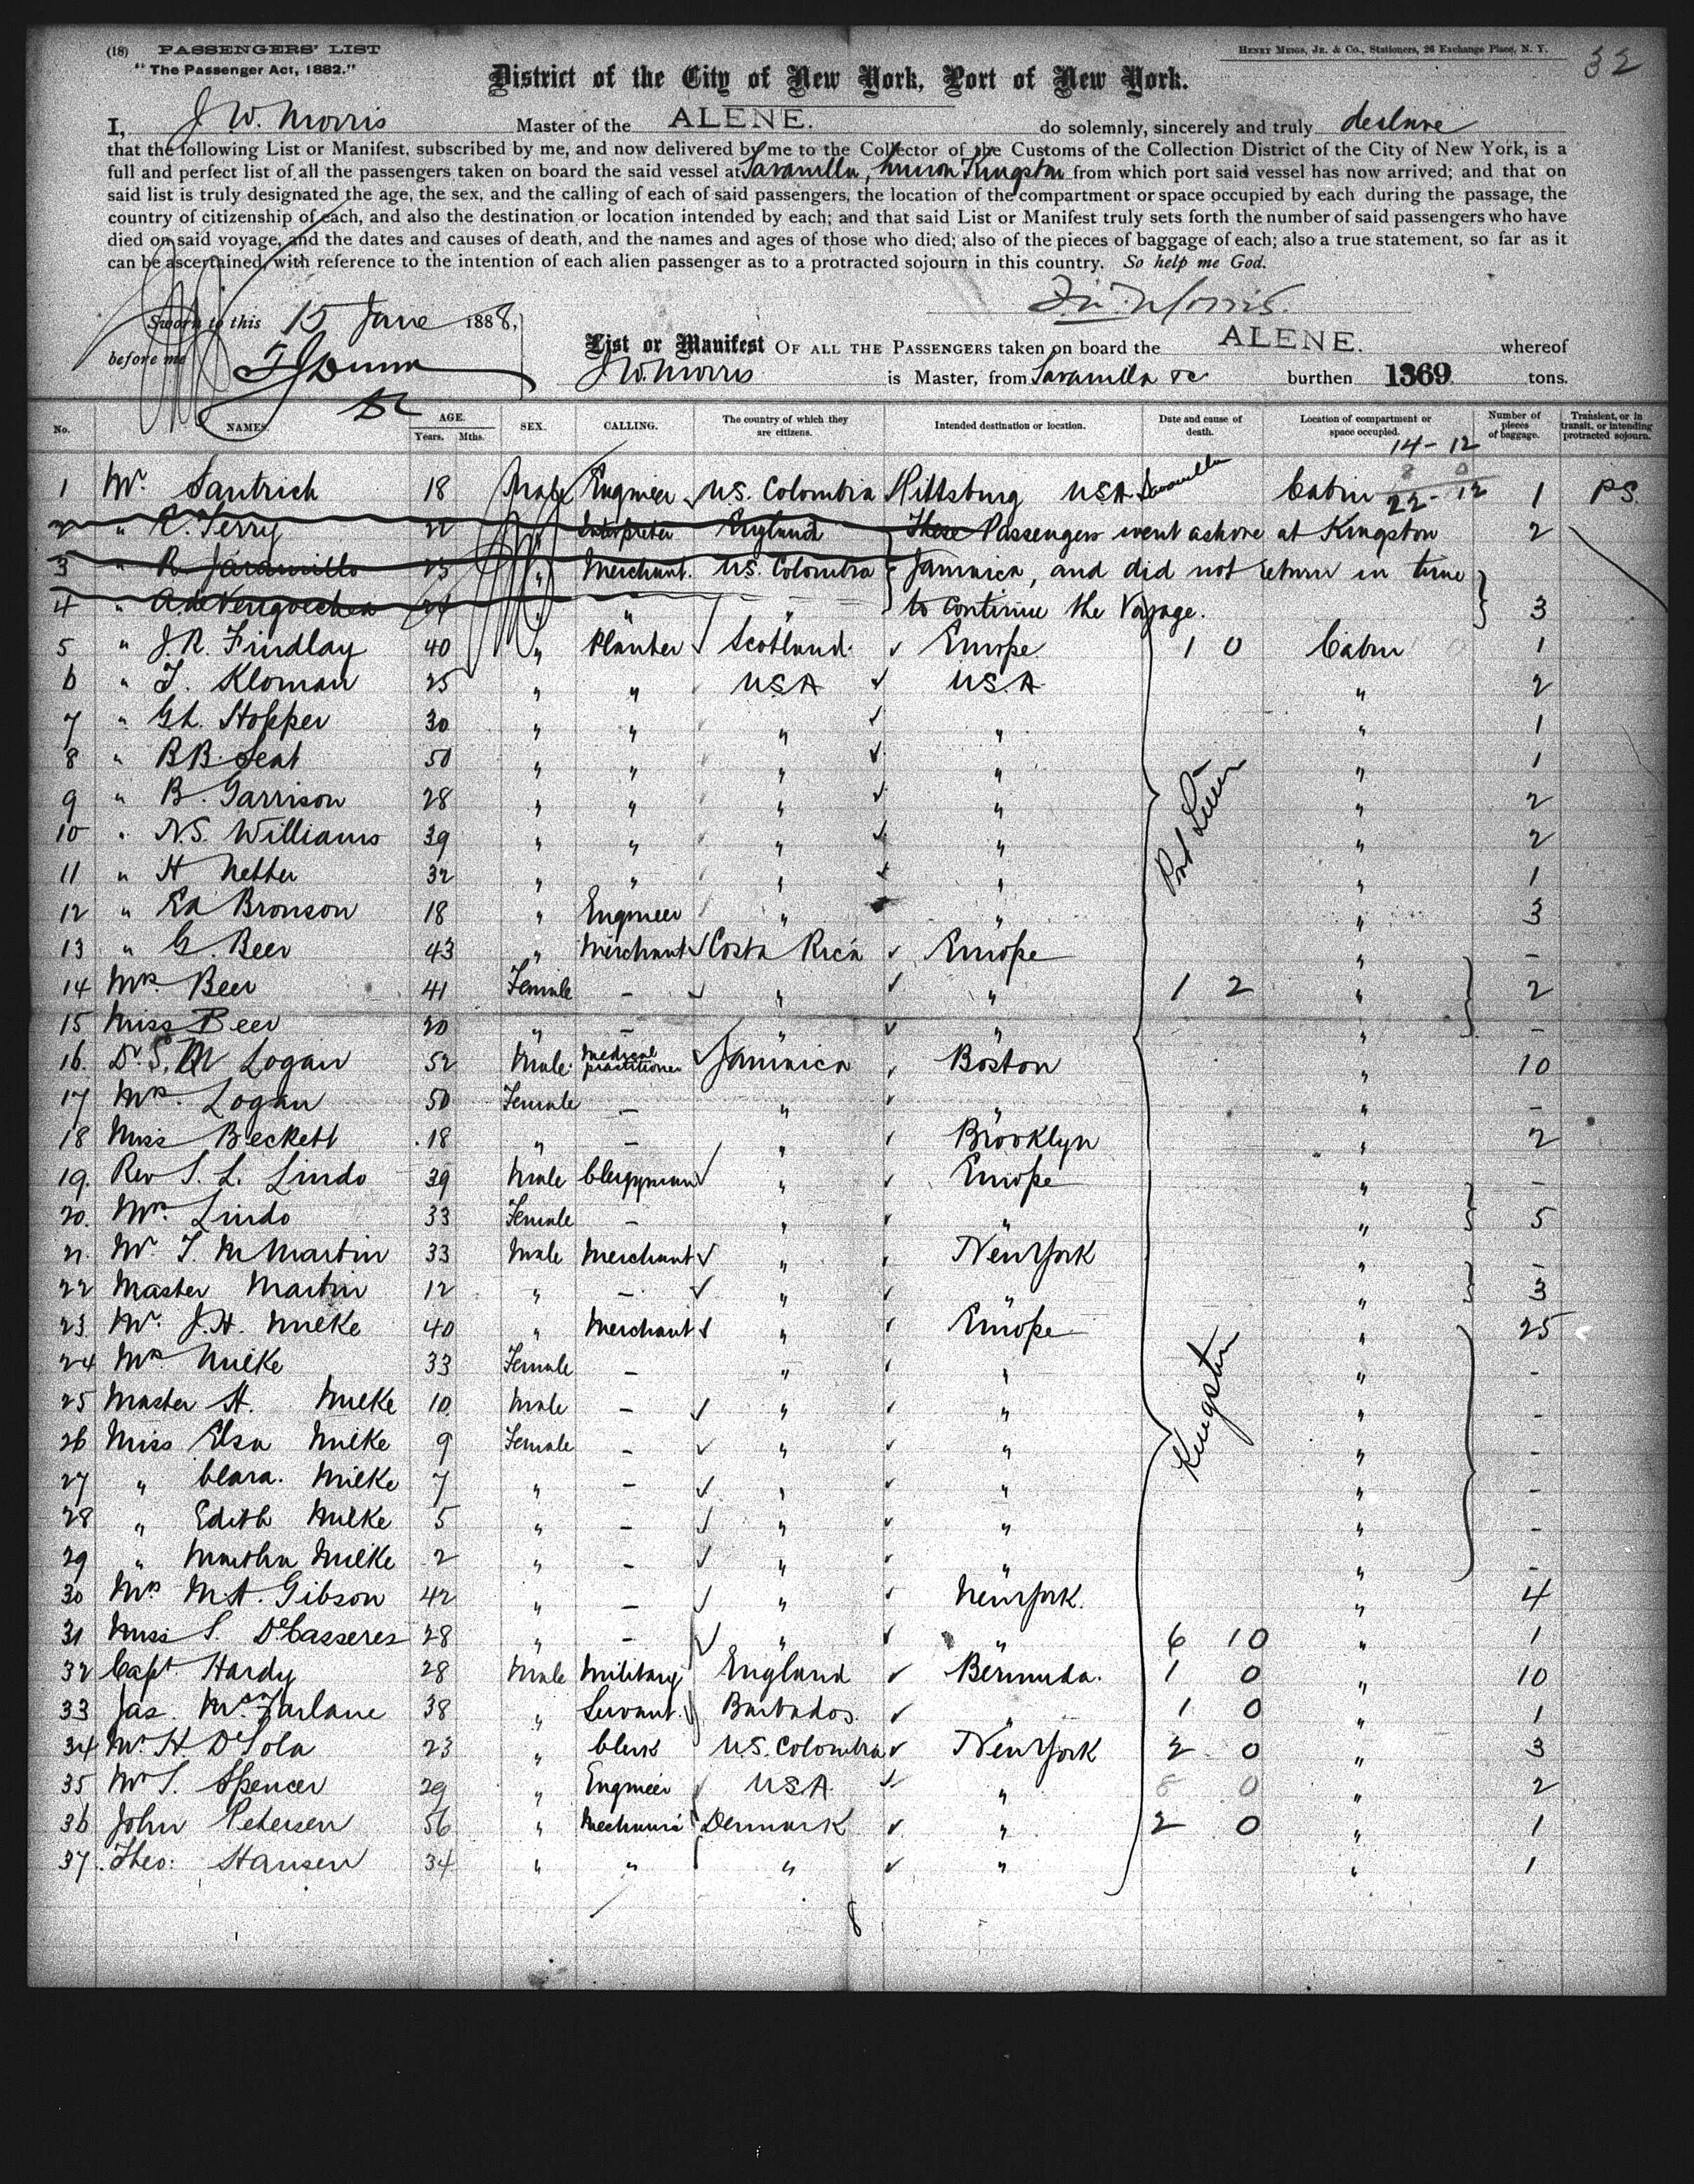 (18) PASSENGERS' LIST
HENRY MEIGS, JR. & CO., Stationers, 26 Exchange Place, N. Y.
32
"The Passenger Act, 1882."
District of the City of New York, Port of New York.
I, J. W. Morris Master of the ALENE. do solemnly, sincerely and truly declare
that the following List or Manifest, subscribed by me, and now delivered by me to the Collector of the Customs of the Collection District of the City of New York, is a
full and perfect list of all the passengers taken on board the said vessel at Savanilla, Kingston from which port said vessel has now arrived; and that on
said list is truly designated the age, the sex, and the calling of each of said passengers, the location of the compartment or space occupied by each during the passage, the
country of citizenship of each, and also the destination or location intended by each; and that said List or Manifest truly sets forth the number of said passengers who have
died on said voyage, and the dates and causes of death, and the names and ages of those who died; also of the pieces of baggage of each; also a true statement, so far as it
can be ascertained, with reference to the intention of each alien passenger as to a protracted sojourn in this country. So help me God.
J. W. Morris.
Sworn to this 15 June 1888,
before me
List or Manifest OF ALL THE PASSENGERS taken on board the ALENE. whereof
J. W. Morris is Master, from Savanilla &c burthen 1369 tons.
No. NAMES. AGE. Years. Mths. SEX. CALLING. The country of which they are citizens. Intended destination or location. Date and cause of death. Location of compartment or space occupied. Number of pieces of baggage. Transient, or in transit, or intending protracted sojourn.
14 - 12
22 - 12
1 Mr. Santrich 18 Male Engineer U.S. Colombia Pittsburg USA Savanilla Cabin 1 P.S.
2 " C. Terry 22 " Interpreter England These Passengers went ashore at Kingston 2
3 " R Jaramillo 25 " Merchant. U.S. Colombia Jamaica, and did not return in time
4 " " " " to continue the Voyage. 3
5 " J. R. Findlay 40 " Planter Scotland. Europe 1 0 Cabin 1
6 " T. Kloman 25 " " USA U.S.A. " 2
7 " Gh. Hopper 30 " " " " " 1
8 " B B. Seat 50 " " " " " 1
9 " B. Garrison 28 " " " " " 2
10 " N.S. Williams 39 " " " " " 2
11 " H Netter 32 " " " " " 1
12 " Ed Bronson 18 " Engineer " " " 3
Port Limon
13 " G. Beer 43 " Merchant Costa Rica Europe " -
14 Mrs. Beer 41 Female - " " 1 2 " 2
15 Miss Beer 20 " - " " " -
16. Dr. S. M Logan 52 Male. Medical practitioner Jamaica Boston " 10
17 Mrs. Logan 50 Female - " " " -
18 Miss Beckett 18 " - " Brooklyn " 2
19. Rev S. L. Lindo 39 Male Clergyman " Europe " -
20. Mrs. Lindo 33 Female - " " " 5
21. Mr T. M Martin 33 Male Merchant " New York " -
22 Master Martin 12 " - " " " 3
23. Mr. J. H. Milke 40 " Merchant " Europe " 25
24 Mrs Milke 33 Female - " " " -
25 Master H. Milke 10. Male - " " " -
26 Miss Elsa Milke 9 Female - " " " -
27 " Clara. Milke 7 " - " " " -
28 " Edith Milke 5 " - " " " -
29 " Martha Milke 2 " - " " " -
Kingston
30 Mrs M. A. Gibson 42 " - " New York. " 4
31 Miss S. DeCasseres 28 " - " " 6 10 " 1
32 Capt Hardy 28 Male Military England Bermuda. 1 0 " 10
33 Jas. McFarlane 38 " Servant. Barbados. " 1 0 " 1
34 Mr. H DeSola 23 " Clerk U.S. Colombia New York 2 0 " 3
35 Mr S. Spencer 29 " Engineer USA " 8 0 " 2
36 John Petersen 56 " Mechanic Denmark " 2 0 " 1
37. Theo: Hansen 34 " " " " " 1
8